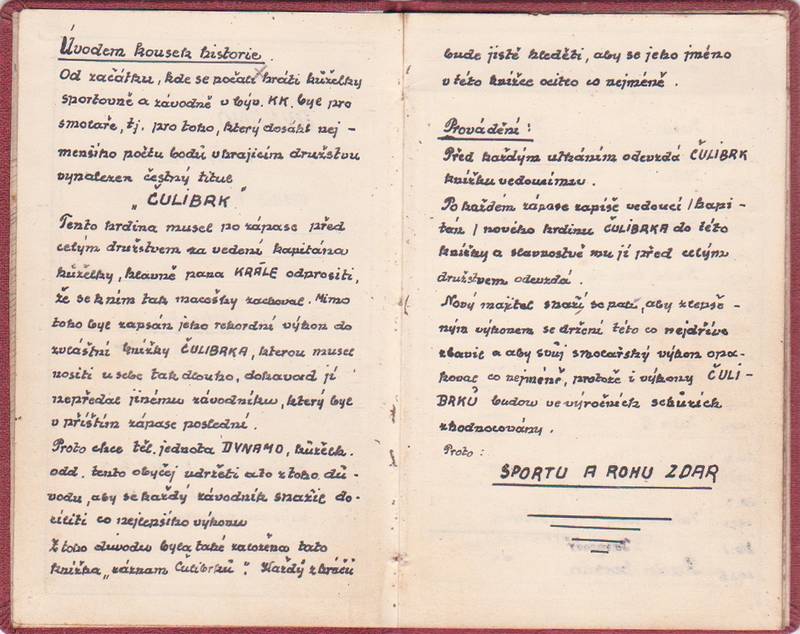 Úvodem kousek historie
Od začátku, kde se počali hráti kůželky
sportovně a závodně v býv. KK. byl pro
smolaře, tj. pro toho, který dosáhl nej -
menšího počtu bodů v hrajícím družstvu
vynalezen čestný titul
"ČULIBRK"
Tento hrdina musel po zápase před
celým družstvem za vedení kapitána
kůželky, hlavně pana KRÁLE odprositi,
že se k ním tak macošsky zachoval. Mimo
toho byl zapsán jeho rekordní výkon do
zvláštní knížky ČULIBRKA, kterou musel
nositi u sebe tak dlouho, dokavad jí
nepředal jinému závodníku, který byl
v příštím zápase poslední.
Proto chce těl. jednota DYNAMO, kůželk.
odd. tento obyčej udržeti a to z toho dů -
vodu, aby se každý závodník snažil do -
cíliti co nejlepšího výkonu
Z toho důvodu byla také založena tato
knížka "záznam Čulibrků". Každý z hráčů
bude jistě hleděti, aby se jeho jméno
v této knížce ocitlo co nejméně.
Provádění:
Před každým utkáním odevzdá ČULIBRK
knížku vedoucímu.
Po každém zápase zapíše vedoucí /kapi -
tán/ nového hrdinu ČULIBRKA do této
knížky a slavnostně mu jí před celým
družstvem odevzdá.
Nový majitel snaží se pak, aby zlepše -
ným výkonem se držení této co nejdříve
zbavil a aby svůj smolařský výkon opa -
koval co nejméně, protože i výkony ČULI -
BRKŮ budou ve výročních schůzích
zhodnocovány.
Proto:
SPORTU A ROHU ZDAR